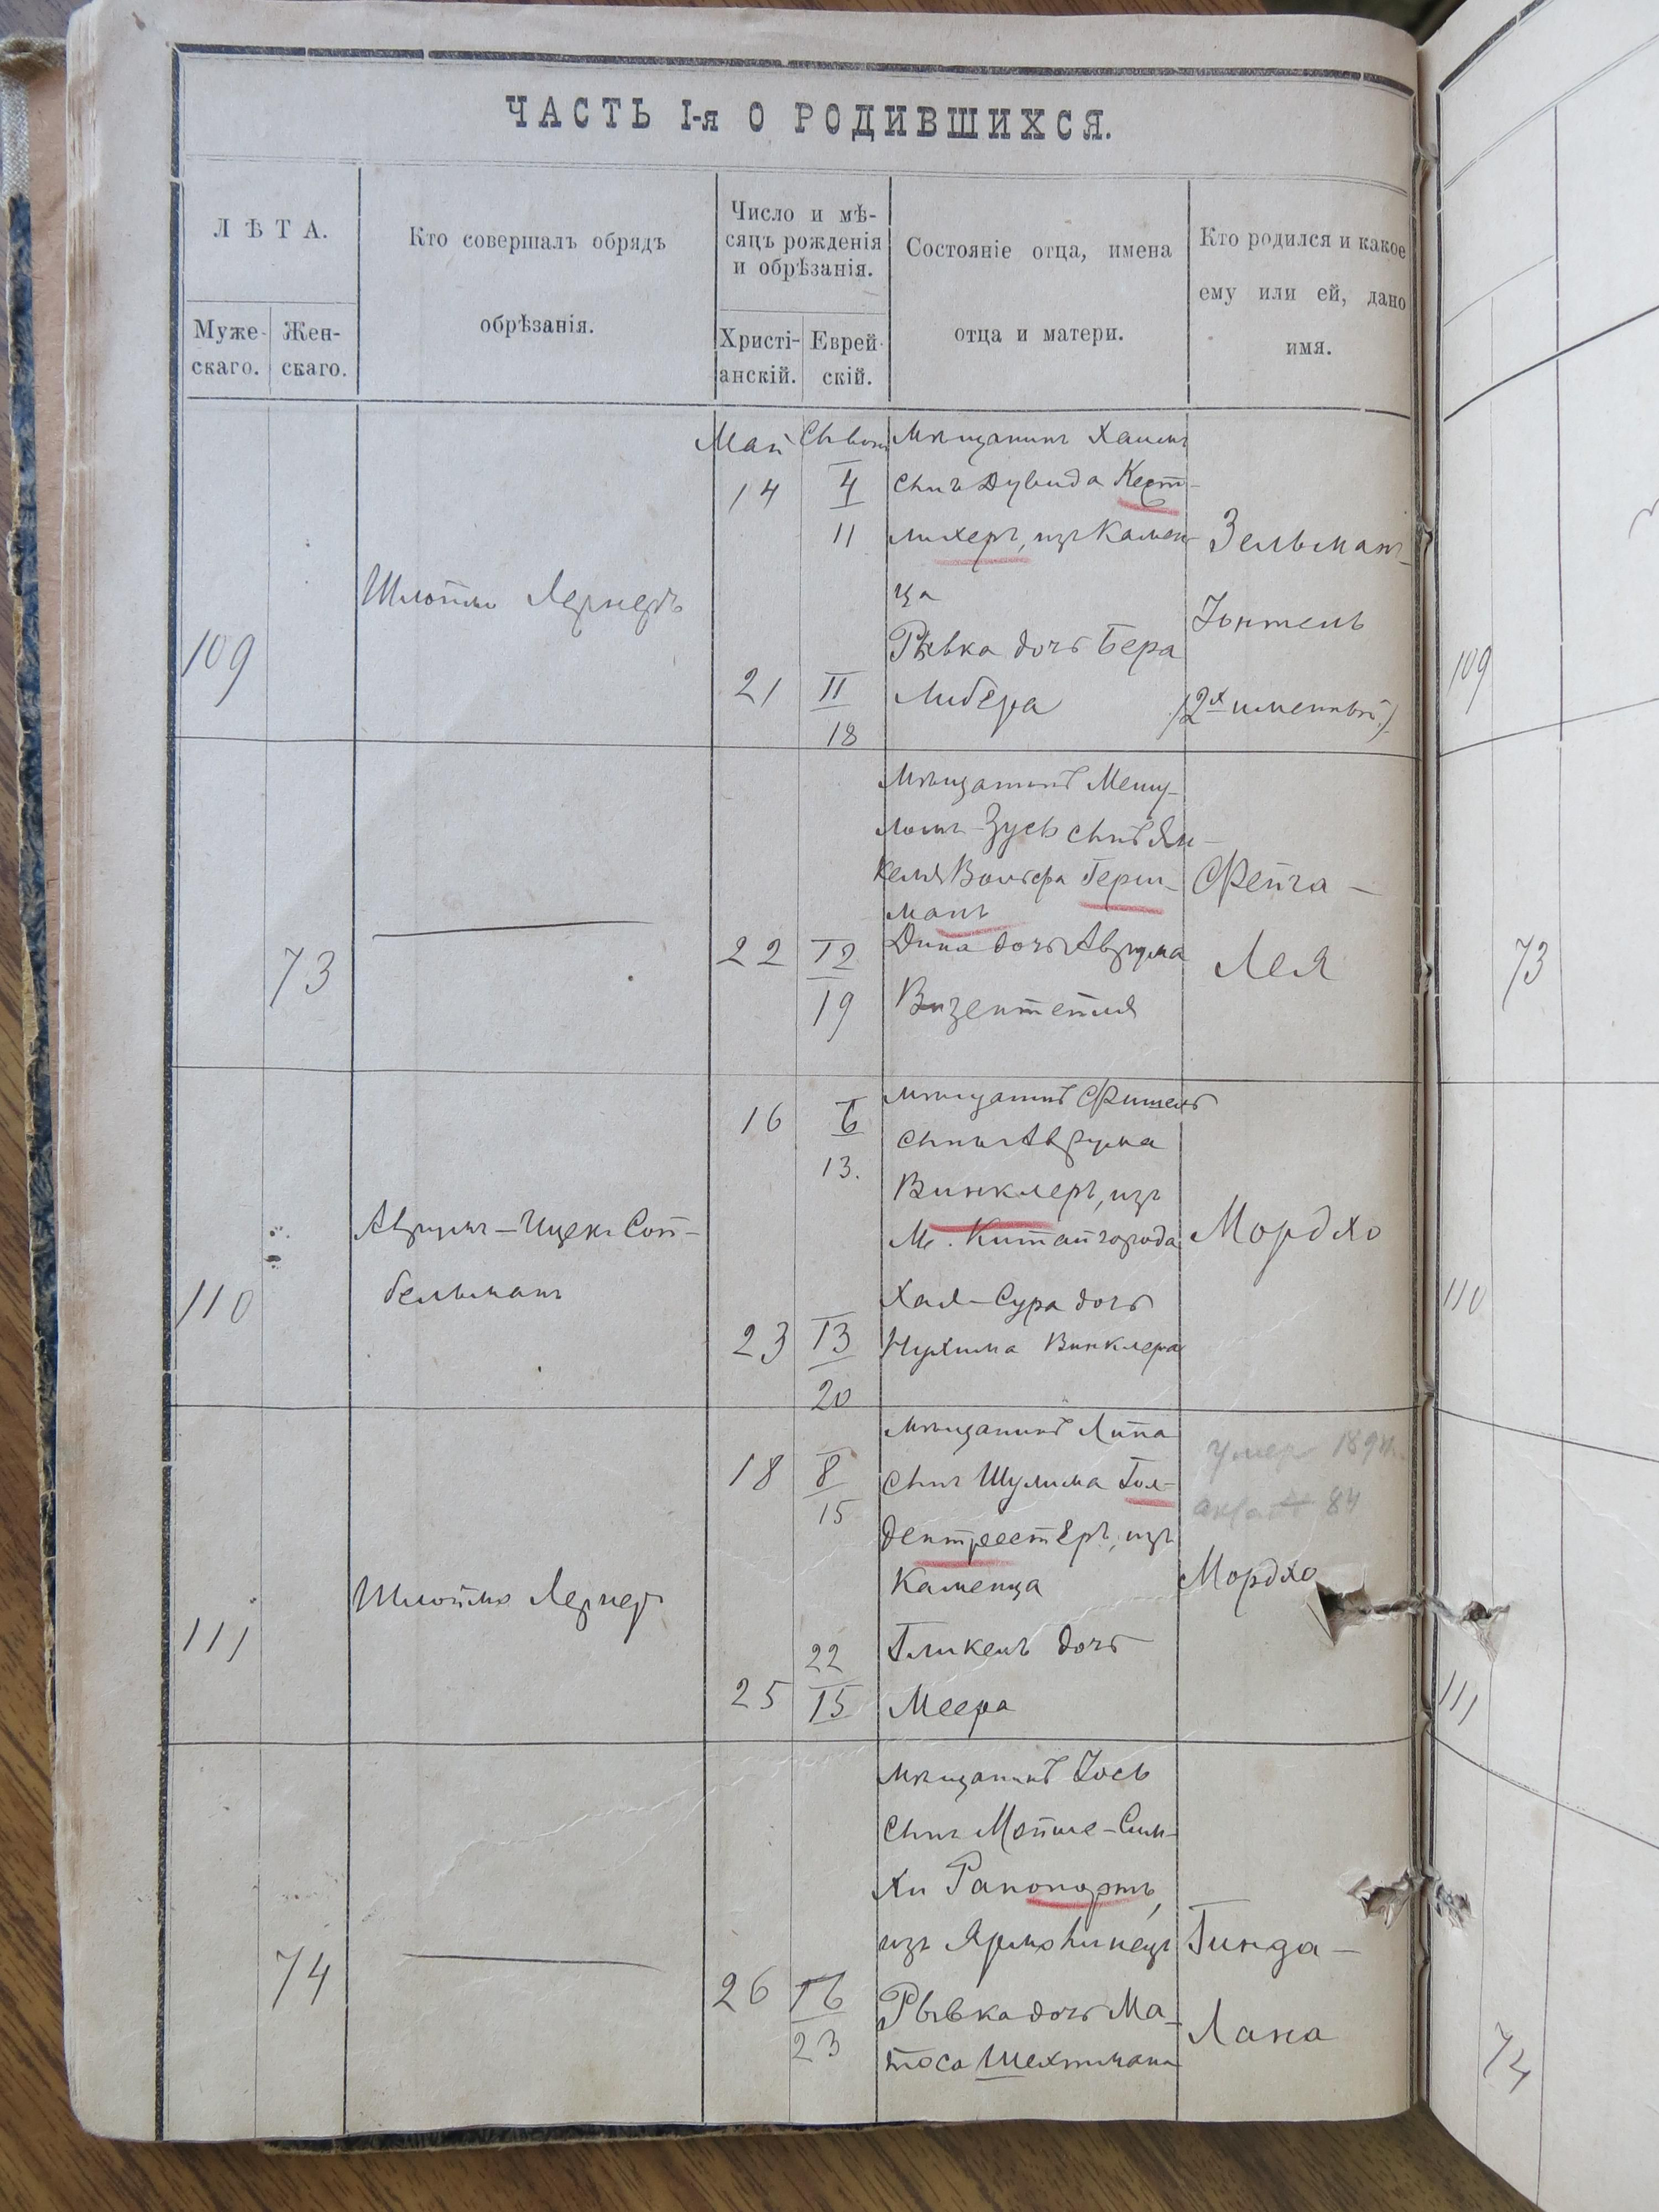 ЧАСТЬ I-я О РОДИВШИХСЯ.
ЛѢТА.
Муже-
скаго.
Жен-
скаго.
Кто совершалъ обрядъ
обрѣзанія.
Число и мѣ-
сяцъ рожденія
и обрѣзанія.
Христі-
анскій.
Еврей-
скій.
Состояніе отца, имена
отца и матери.
Кто родился и какое
ему или ей, дано
имя.
109
Шлойма Лернеръ
Май
14
21
Сивонъ
4
11
11
18
Мѣщанинъ Хаимъ
сынъ Дувида Кест-
лихеръ, изъ Камен-
ца
Рывка дочь Бера
Либера
Зельман-
Іонтель
(2х именный)
109
73
22
12
19
Мѣщанинъ Мешу-
ломъ-Зусь сынъ Ян-
келя Вольфа Герш-
манъ
Дина дочь Аврума
Визентейля
Фейга-
Лея
73
110
Аврумъ-Ицекъ Сой-
бельманъ
16
23
6
13.
13
20
Мѣщанинъ Фишель
сынъ Аврума
Винклеръ, изъ
М. Китайгорода
Хая-Сура дочь
Нухима Винклера
Мордхо
110
111
Шлойма Лернеръ
18
25
8
15
22
15
Мѣщанинъ Липа
сынъ Шулима Гол-
дентреестеръ, изъ
Каменца
Гликель дочь
Меера
умеръ 189
84
Мордхо
111
74
26
16
23
Мѣщанинъ Іось
сынъ Мойше-Сим-
хи Рапопортъ,
изъ Ярмолинецъ
Рывка дочь Ма-
тоса Шехтмана
Гинда-
Лана
74